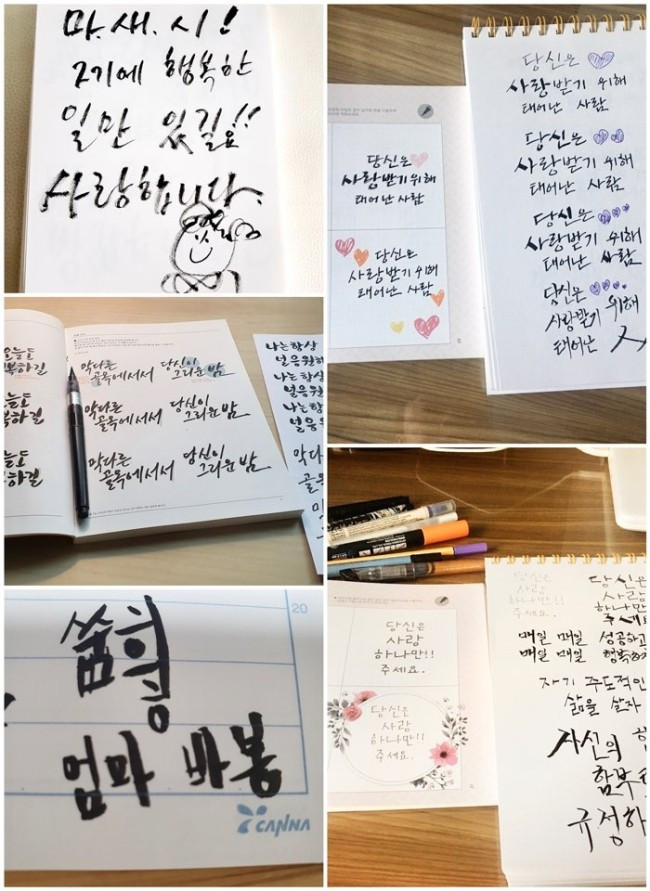 마.새.시!
2기에 행복한
일만 있길요!!
사랑합니다.
당신은
사랑받기 위해
태어난 사람
당신은
사랑받기 위해
태어난 사람
당신은
사랑받기 위해
태어난 사람
당신은
사랑받기 위해
태어난 사람
당신은
사랑받기 위해
태어난 사람
당신은
사랑받기 위해
태어난
오늘도
하길
막다른
골목에서서
당신이
그리운 밤
나는 항상
널 응원해
막다른
골목에서서
당신이
그리운 밤
나는 항상
널 응원
막다른
골목에서서
당신이
그리운 밤
나는 항상
널 응원
막다른
골목
20
엄마 바봉
CANNA
당신은
사랑
하나만!!
주세요.
당신은
사랑
하나만!!
주세요.
당신은
사랑
하나만!!
주세요.
당신은
사랑
하나만!!
주세요
매일 매일 성공하고
매일 매일 행복하
자기 주도적인
삶을 살자
자신의
함부
규정하